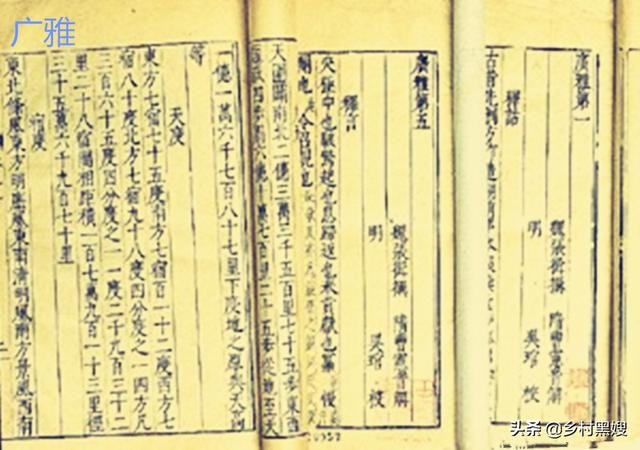 广雅
廣雅第一
魏張揖撰 隋曹憲音解
明 吳琯 校
釋詁
廣雅第五
魏張揖撰 隋曹憲音解
明 吳琯 校
釋言
天圜闢南北二億三萬三千五百里七十五步東西
短減四步周六億十萬七百里二十五步從地至天
一億一萬六千七百八十七里下度地之厚與天高
等
天度
東方七宿七十五度南方七宿百一十二度西方七
宿八十度北方七宿九十八度四分度之一四方凡
三百六十五度四分度之一一度二千九百三十二
里二十八宿間相距積一百七萬九百一十三里徑
三十五萬六千九百七十里
宿度
東北條風東方明庶風東南清明風南方景風西南
头条 @乡村黑嫂